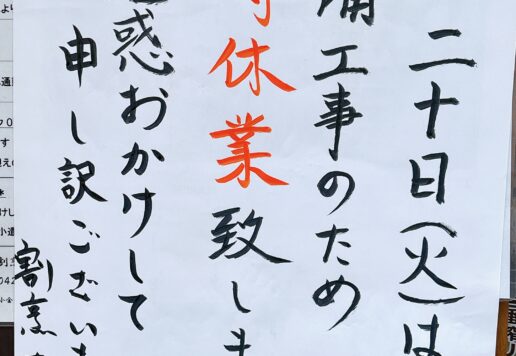 二十日(火)は
工事のため
休業致しま
惑おかけして
申し訳ござい
割烹